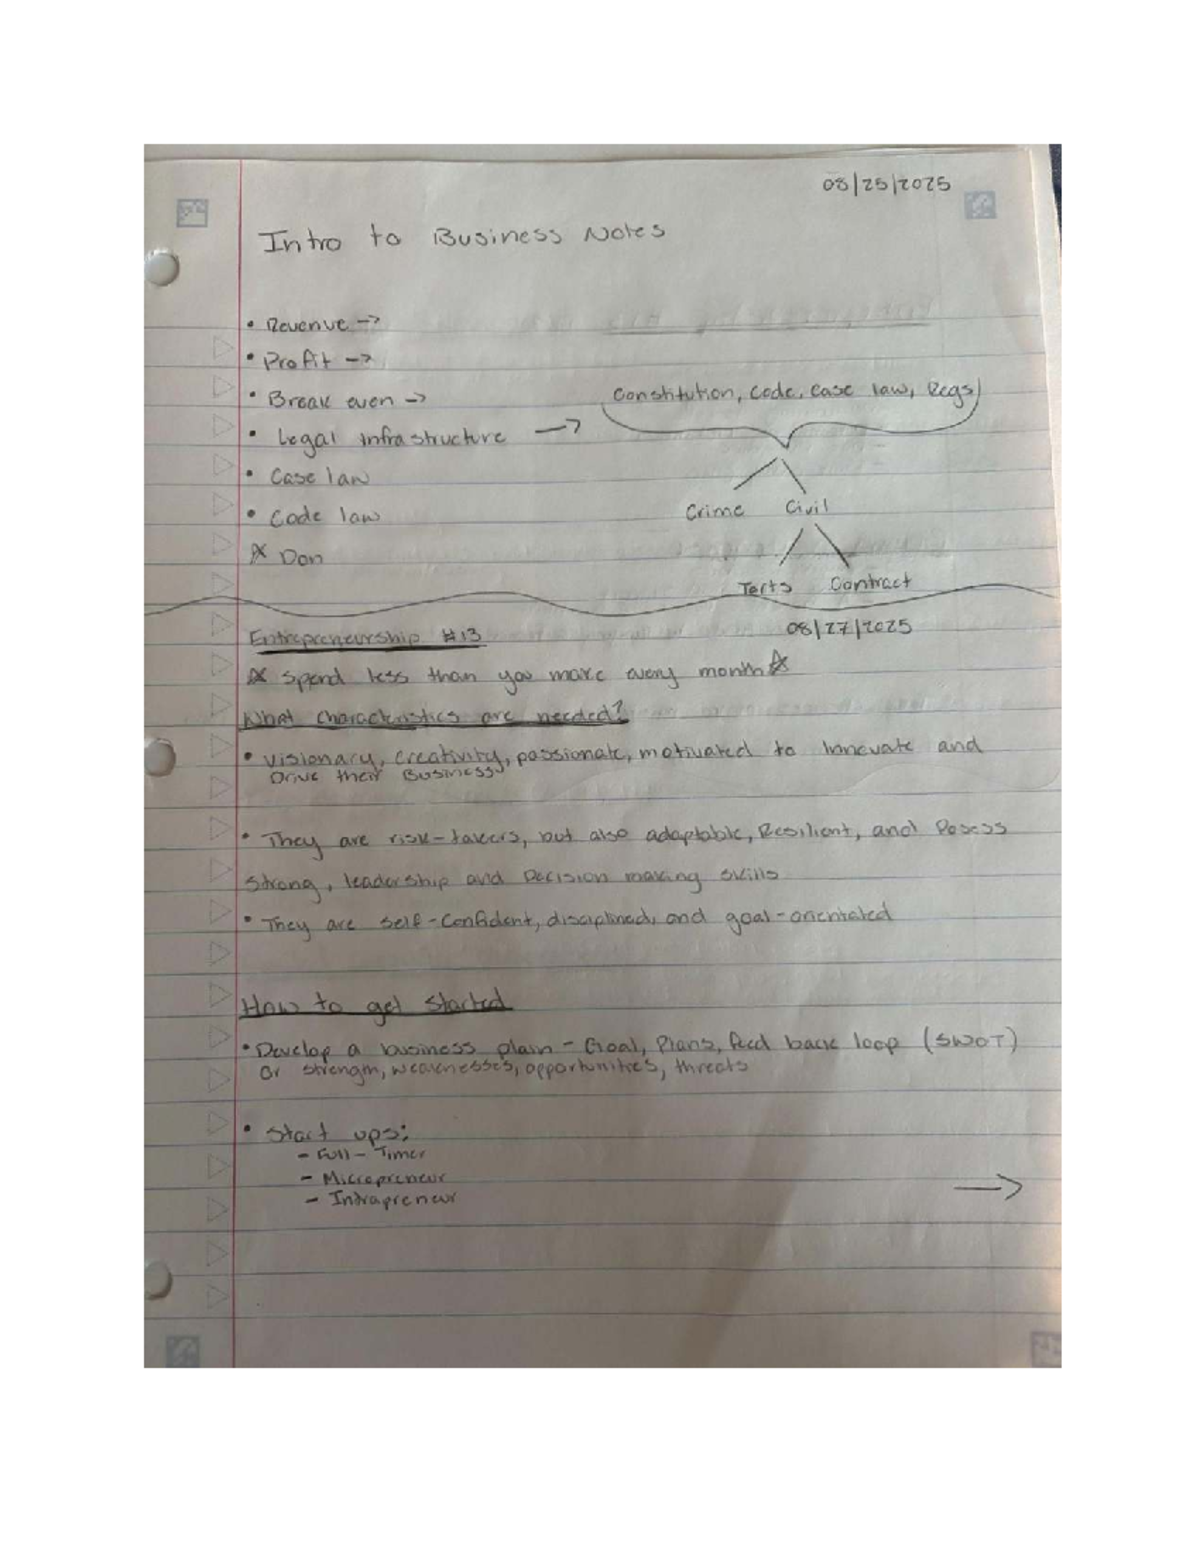 08/25/2025
Intro to Business Notes
• Revenue ->
• Profit ->
• Break even ->
Constitution, Code, Case law, Regs
• Legal infrastructure ->
• Case law
• Code law
Crime Civil
☆ Don
Torts Contract
Entrepreneurship #13 08/27/2025
☆ Spend less than you make every month ☆
What characteristics are needed?
• visionary, creativity, passionate, motivated to innovate and
Drive their Business
• They are risk-takers, but also adaptable, Resilient, and Posess
Strong, leadership and Decision making skills
• They are self-confident, disciplined, and goal-orientated
How to get started
• Develop a business plain - Goal, Plans, feed back loop (SWOT)
or strength, weaknesses, opportunities, threats
• Start ups:
- Full-Timer
- Micropreneur
- Intrapreneur
->